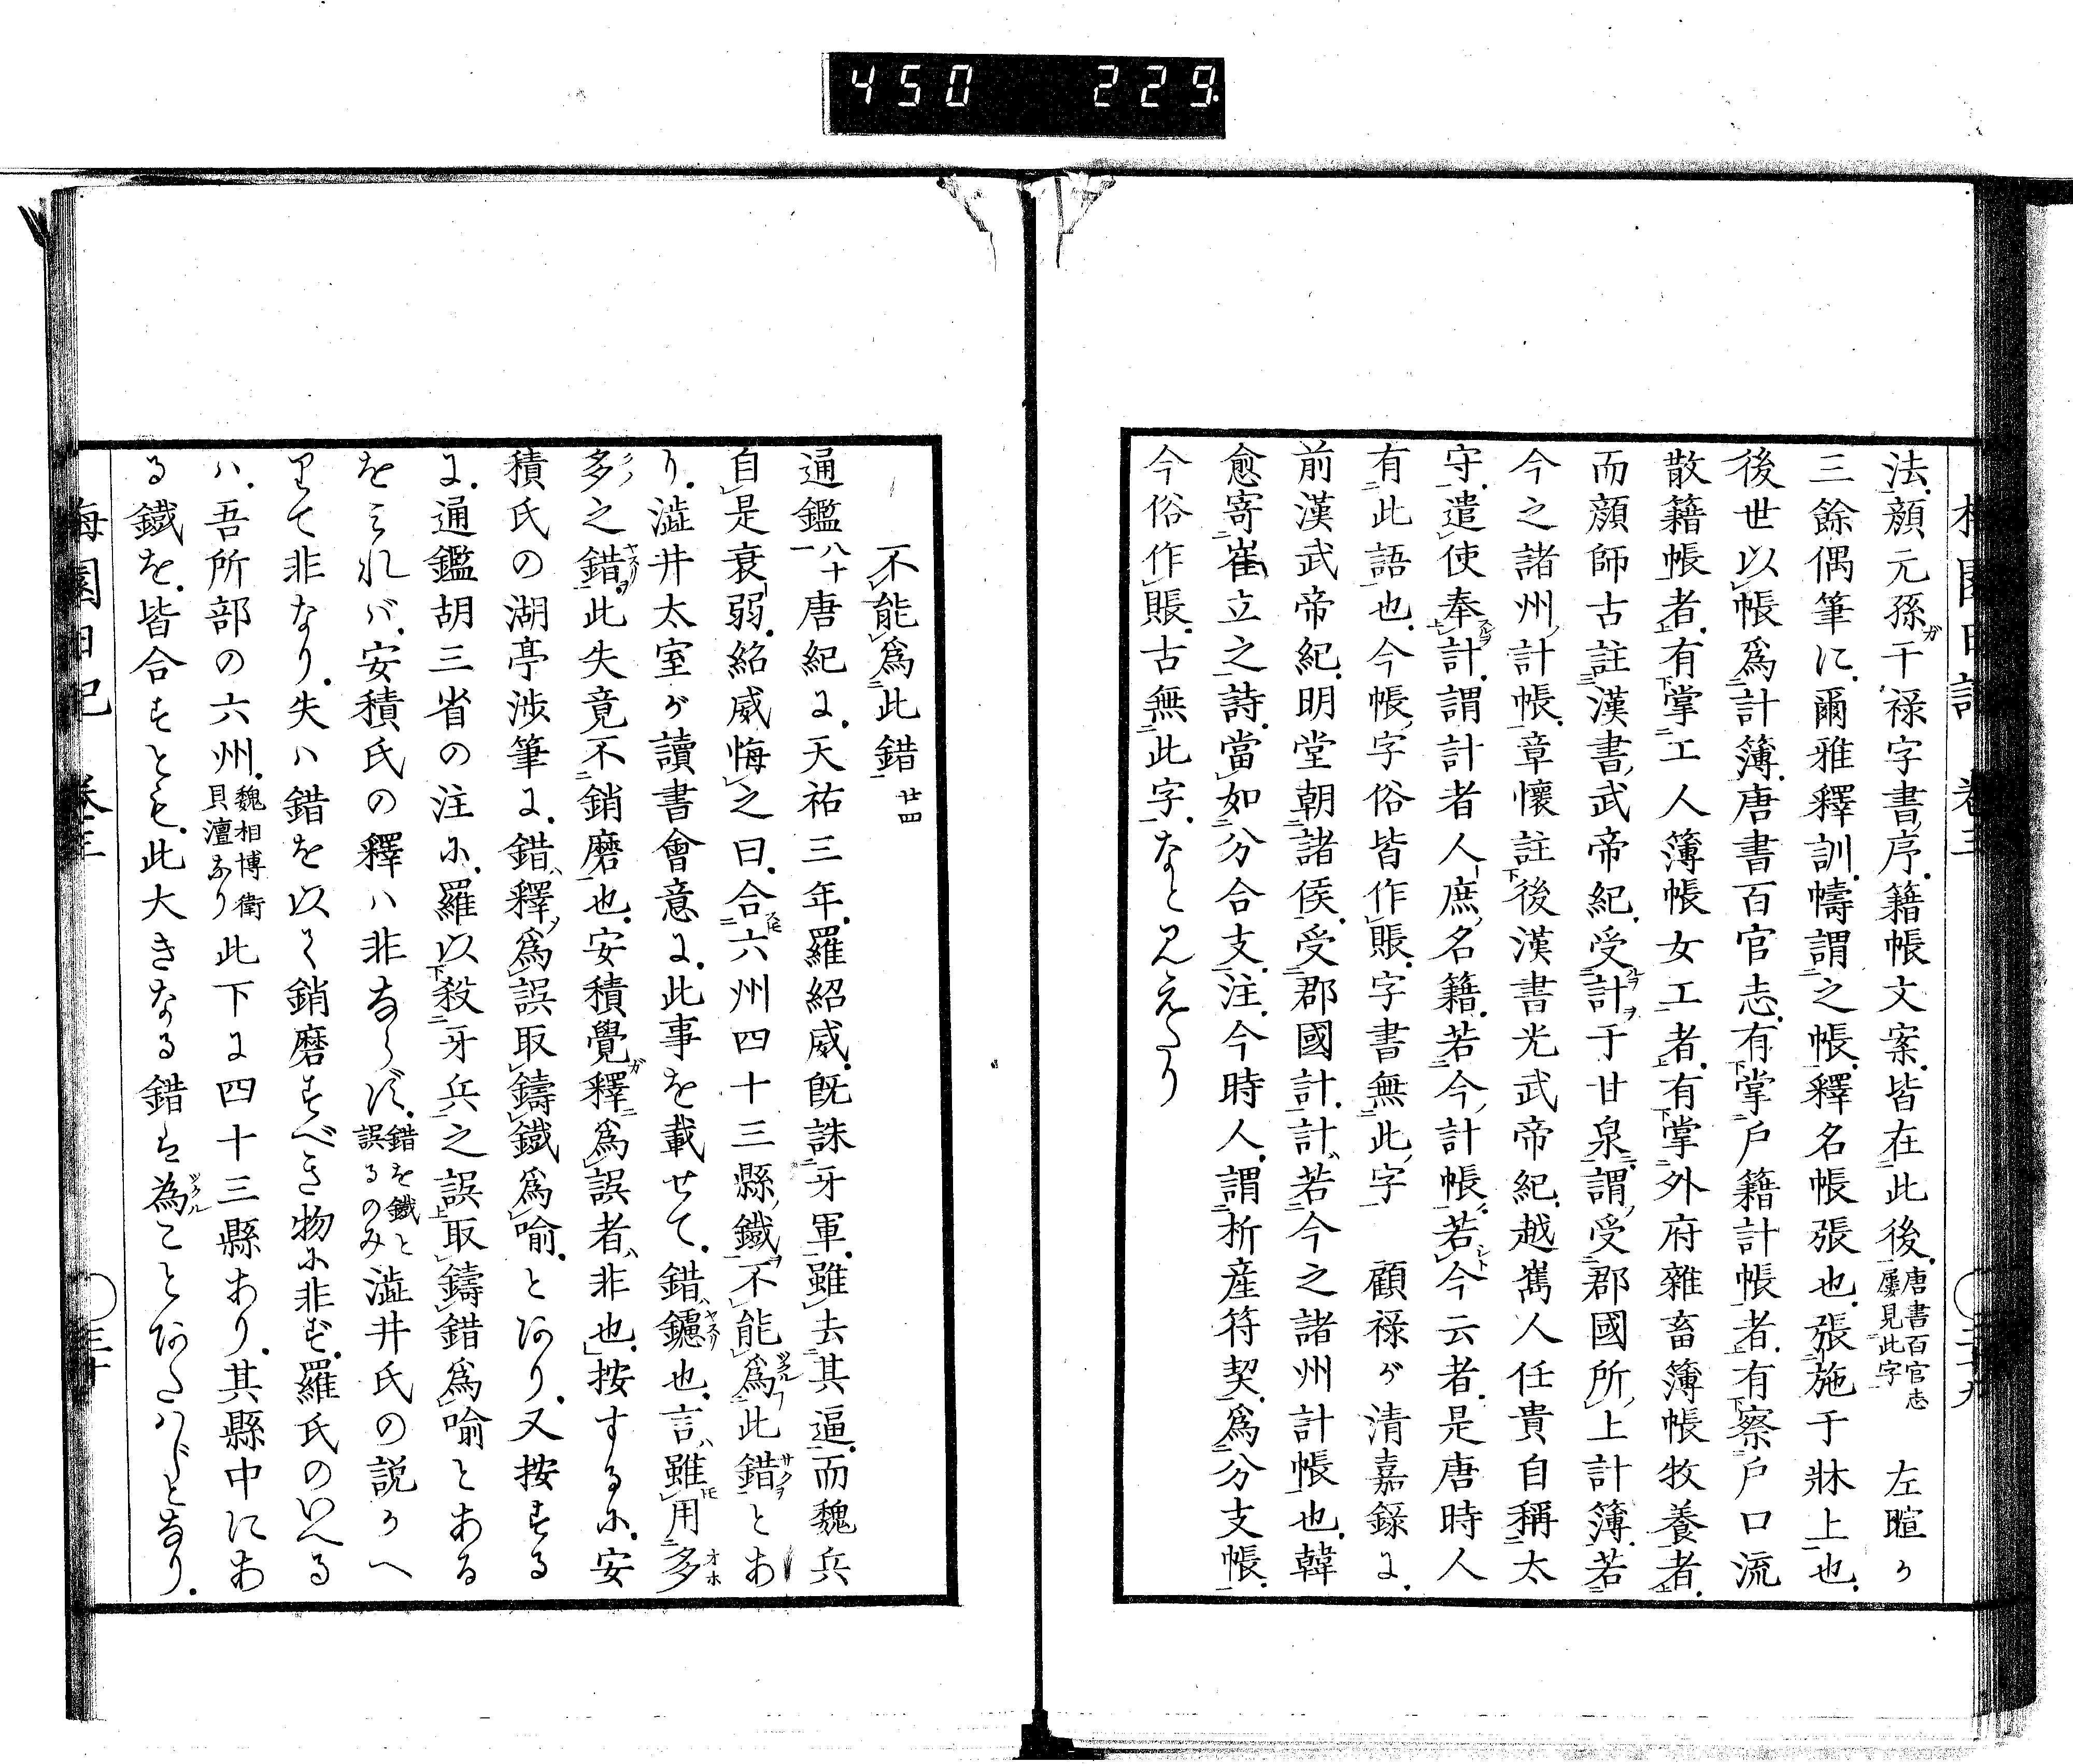 450 229
梅園日記 卷三 二十九
法。顔元孫ガ干禄字書序。籍帳文案。皆在此後。唐書百官志屢見此字 左暄か
三餘偶筆に。爾雅釋訓。幬謂之帳。釋名帳張也。張施于牀上也。
後世以帳爲計簿。唐書百官志。有掌戶籍計帳者。有察戶口流
散籍帳者。有掌工人簿帳女工者。有掌外府雜畜簿帳牧養者。
而顔師古註漢書武帝紀。受計于甘泉。謂受郡國所上計簿。若
今之諸州計帳。章懷註後漢書光武帝紀。越嶲人任貴自稱太
守。遣使奉計。謂計者人庶名籍。若今計帳。若今云者。是唐時人
有此語也。今帳字俗皆作賬。字書無此字 顧禄が清嘉録に。
前漢武帝紀。明堂朝諸侯。受郡國計。計若今之諸州計帳也。韓
愈寄崔立之詩。當如分合支。注。今時人。謂析産符契。爲分支帳。
今俗作賬。古無此字。なと見えたり
不能爲此錯 廿四
通鑑八十一唐紀に。天祐三年。羅紹威。既誅牙軍。雖去其逼。而魏兵
自是衰弱。紹威悔之曰。合六州四十三縣鐵。不能爲此錯とあ
り。澁井太室が讀書會意に。此事を載せて。錯鑢也。言雖用多
多之錯。此失竟不銷磨也。安積覺釋爲誤者。非也。按するに。安
積氏の湖亭渉筆に。錯釋爲誤取鑄鐵爲喩。とあり。又按する
に。通鑑胡三省の注に。羅以殺牙兵之誤取鑄錯爲喩とある
をみれバ。安積氏の釋ハ非ならず。錯を鐵と誤るのみ澁井氏の説かへ
りて非なり。失ハ錯を以て銷磨すべき物に非ず。羅氏のいへる
ハ。吾所部の六州。魏相博衛貝澶なり此下に四十三縣あり。其縣中にあ
る鐵を。皆合すとも。此大きなる錯は為ことあたはじとなり。
梅園日記 卷三 三十